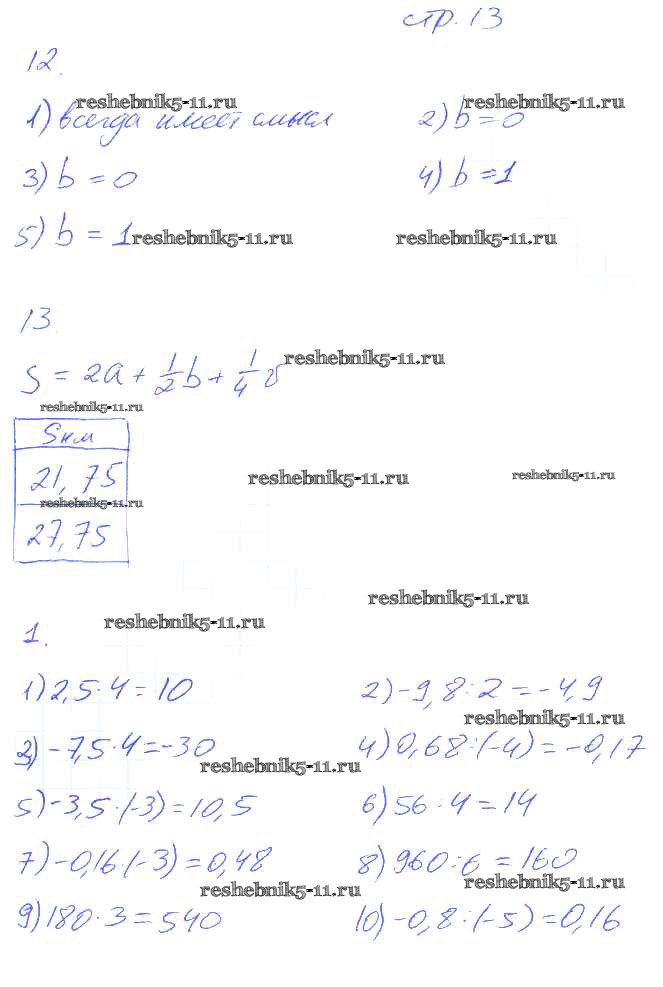 стр. 13
12.
reshebnik5-11.ru reshebnik5-11.ru
1) всегда имеет смысл 2) b = 0
3) b = 0 4) b = 1
5) b = 1 reshebnik5-11.ru reshebnik5-11.ru
13.
S = 2a + 1/2 b + 1/4 v reshebnik5-11.ru
reshebnik5-11.ru
Sкм
21,75 reshebnik5-11.ru reshebnik5-11.ru
reshebnik5-11.ru
27,75
reshebnik5-11.ru
1. reshebnik5-11.ru
1) 2,5·4 = 10 2) -9,8:2 = -4,9
reshebnik5-11.ru
3) -7,5·4 = -30 4) 0,68:(-4) = -0,17
reshebnik5-11.ru
5) -3,5·(-3) = 10,5 6) 56:4 = 14
7) -0,16·(-3) = 0,48 8) 960:6 = 160
reshebnik5-11.ru reshebnik5-11.ru
9) 180·3 = 540 10) -0,8:(-5) = 0,16